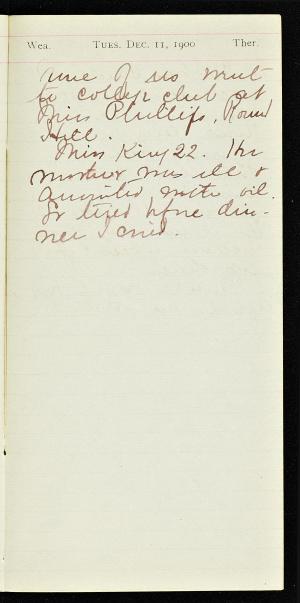 Wea. TUES. DEC. 11, 1900 Ther.
Nine of us went
to college club at
Miss Phillips, Round
Hill.
Miss King 22. Her
mother was ill &
anointed with oil.
So tired before din-
ner I cried.